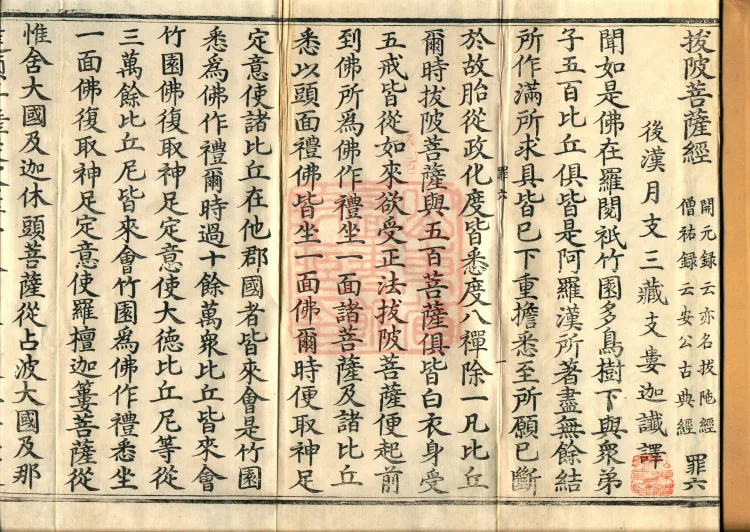 拔陂菩薩經
開元録云亦名拔陁經
僧祐録云安公古典經
罪六
後漢月支三藏支婁迦讖譯
聞如是佛在羅閱祇竹園多鳥樹下與衆弟
子五百比丘俱皆是阿羅漢所著盡無餘結
所作滿所求具皆已下重擔悉至所願已斷
罪六
於故胎從政化度皆悉度八禪除一凡比丘
爾時拔陂菩薩與五百菩薩俱皆白衣身受
五戒皆從如來欲受正法拔陂菩薩便起前
到佛所爲佛作禮坐一面諸菩薩及諸比丘
悉以頭面禮佛皆坐一面佛爾時便取神足
定意使諸比丘在他郡國者皆來會是竹園
悉爲佛作禮爾時過十餘萬衆比丘皆來會
竹園佛復取神足定意使大德比丘尼等從
三萬餘比丘尼皆來會竹園爲佛作禮悉坐
一面佛復取神足定意使羅檀迦簍菩薩從
惟舍大國及迦休頭菩薩從占波大國及那